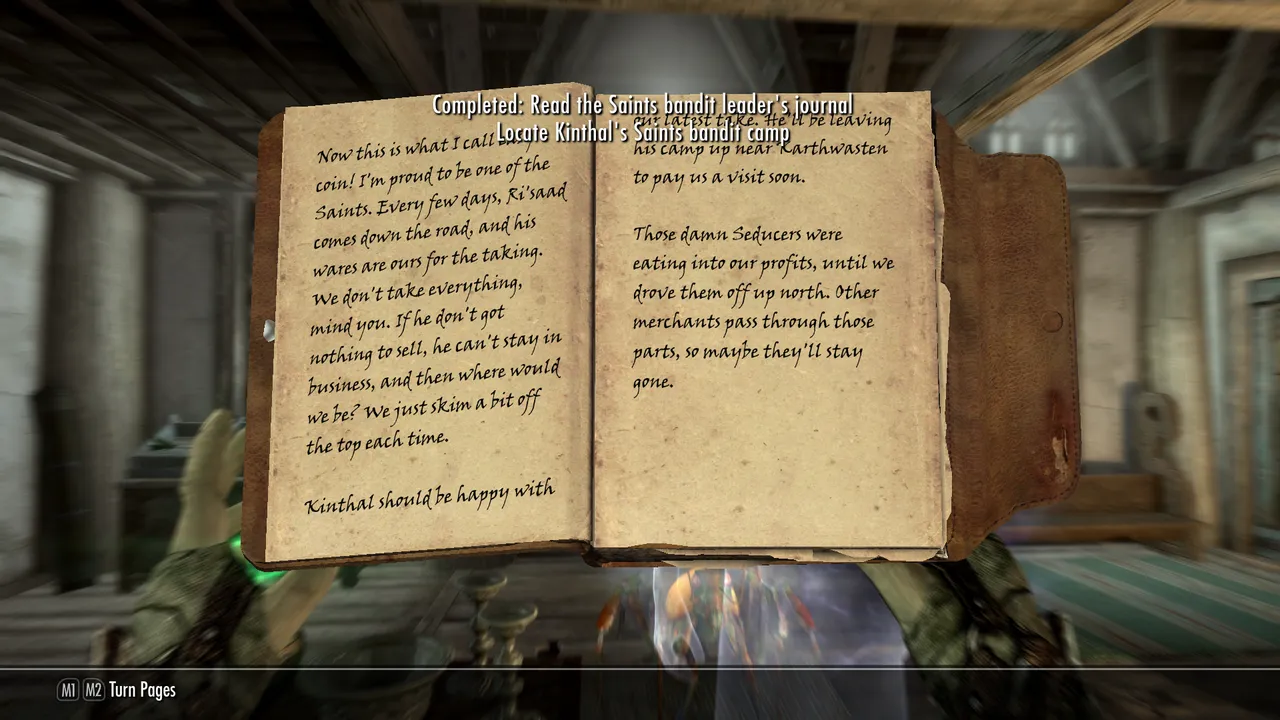 Completed: Read the Saints bandit leader's journal
Locate Kinthal's Saints bandit camp
Now this is what I call
coin! I'm proud to be one of the
Saints. Every few days, Ri'saad
comes down the road, and his
wares are ours for the taking.
We don't take everything,
mind you. If he don't got
nothing to sell, he can't stay in
business, and then where would
we be? We just skim a bit off
the top each time.
Kinthal should be happy with
our latest take. He'll be leaving
his camp up near Karthwasten
to pay us a visit soon.
Those damn Seducers were
eating into our profits, until we
drove them off up north. Other
merchants pass through those
parts, so maybe they'll stay
gone.
M1 M2 Turn Pages